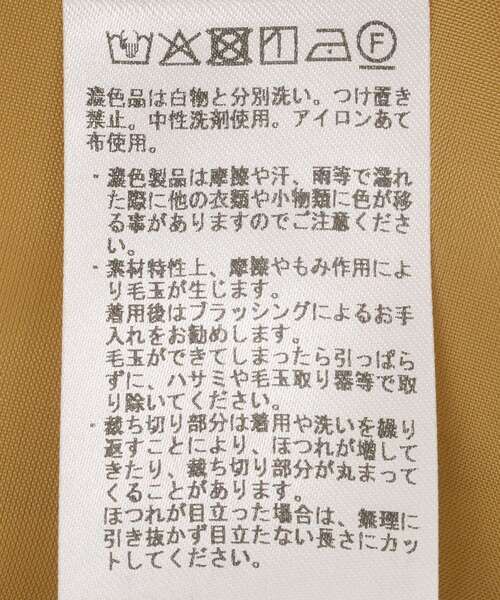 F
濃色品は白物と分別洗い。つけ置き
禁止。中性洗剤使用。アイロンあて
布使用。
・濃色製品は摩擦や汗、雨等で濡れ
た際に他の衣類や小物類に色が移
る事がありますのでご注意くださ
い。
・素材特性上、摩擦やもみ作用によ
り毛玉が生じます。
着用後はブラッシングによるお手
入れをお勧めします。
毛玉ができてしまったら引っぱら
ずに、ハサミや毛玉取り器等で取
り除いてください。
・裁ち切り部分は着用や洗いを繰り
返すことにより、ほつれが増して
きたり、裁ち切り部分が丸まって
くることがあります。
ほつれが目立った場合は、無理に
引き抜かず目立たない長さにカッ
トしてください。